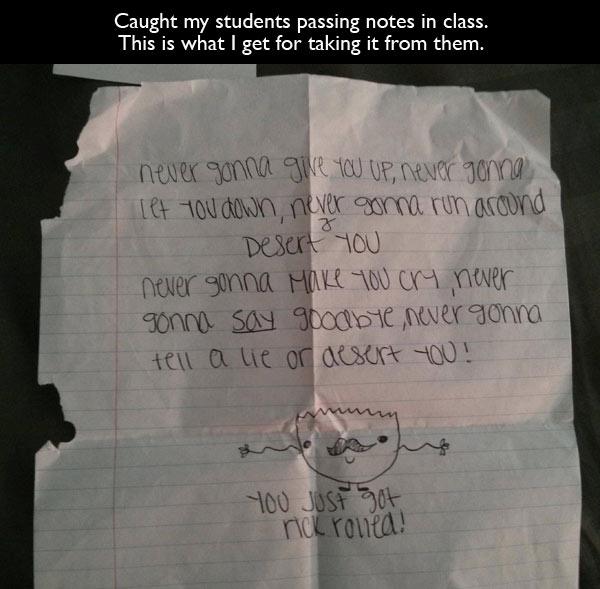 Caught my students passing notes in class.
This is what I get for taking it from them.
never gonna give you up, never gonna
let you down, never gonna run around
&
Desert you
never gonna make you cry, never
gonna say goodbye, never gonna
tell a lie or desert you!
you just got
rick rolled!